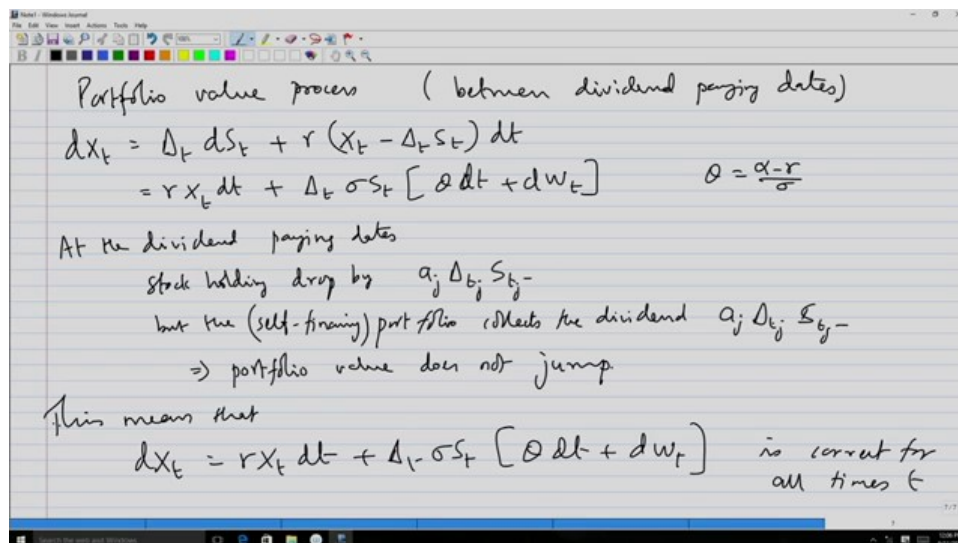 Note1 - Windows Journal
File Edit View Insert Actions Tools Help
Portfolio value process (between dividend paying dates)
dX_t = Δ_t dS_t + r (X_t - Δ_t S_t) dt
= r X_t dt + Δ_t σ S_t [θ dt + dW_t] θ = (α-r)/σ
At the dividend paying dates
stock holding drop by a_j Δ_{t_j} S_{t_j-}
but the (self-financing) portfolio collects the dividend a_j Δ_{t_j} S_{t_j-}
⇒ portfolio value does not jump
This means that
dX_t = r X_t dt + Δ_t σ S_t [θ dt + dW_t] is correct for
all times t
7/7
Search the web and Windows